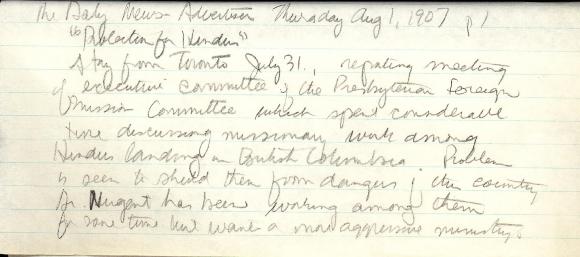 The Daily News-Advertiser Thursday Aug 1, 1907 p 1
"Protection for Hindus"
Story from Toronto July 31, reporting meeting
of executive committee of the Presbyterian Foreign
Mission Committee which spent considerable
time discussing missionary work among
Hindus landing in British Columbia. Problem
is seen to shield them from dangers of this country
Dr. Nugent has been working among them
for some time but want a more aggressive ministry.